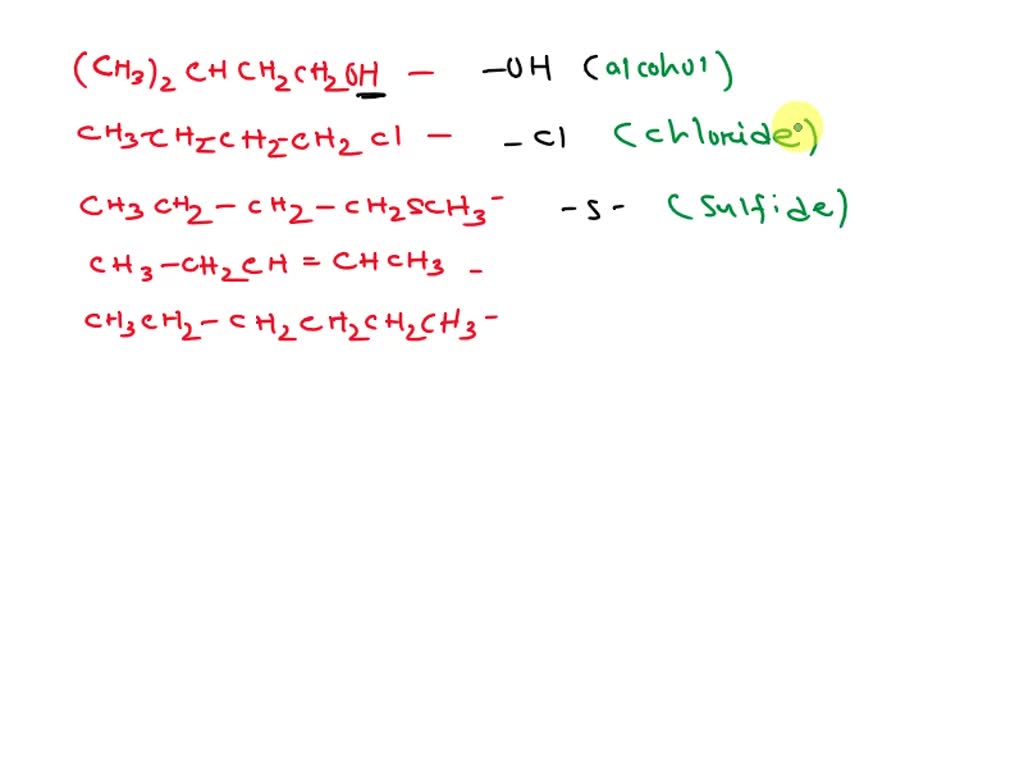 (CH3)2 CH CH2 CH2 OH — -OH (alcohol)
CH3-CH2-CH2-CH2 Cl — -Cl (chloride)
CH3 CH2 - CH2 - CH2SCH3 - -S- (Sulfide)
CH3-CH2CH = CHCH3 -
CH3CH2 - CH2CH2CH2CH3 -